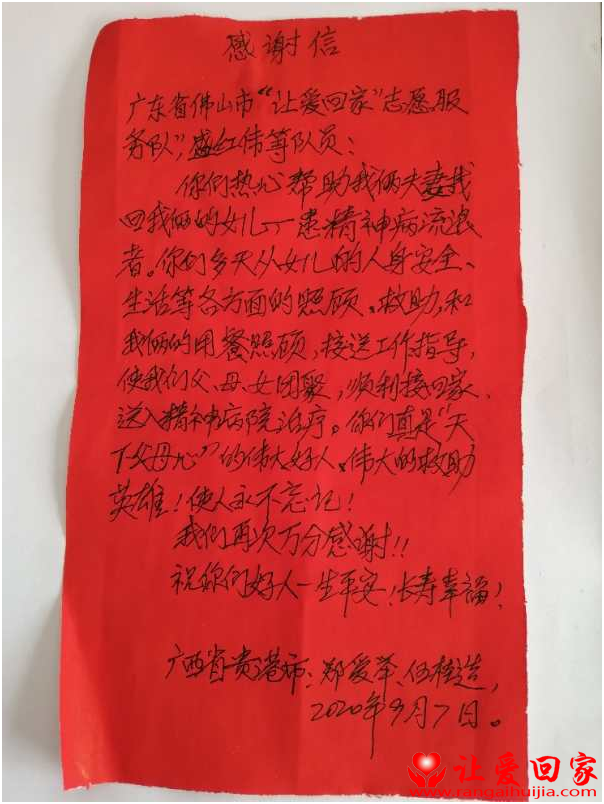 感谢信
广东省佛山市“让爱回家”志愿服
务队”，盛红伟等队员：
你们热心帮助我俩夫妻找
回我俩的女儿——患精神病流浪
者。你们多天从女儿的人身安全、
生活等各方面的照顾、救助，和
我俩的用餐照顾，接送工作指导，
使我们父、母、女团聚，顺利接回家、
送入精神病院治疗。你们真是“天
下父母心”的伟大好人、伟大的救助
英雄！使人永不忘记！
我们再次万分感谢！！
祝你们好人一生平安！长寿幸福！
广西省贵港市：郑爱 、伍桂
2020年9月7日。
让爱回家
www.rangaihuijia.com